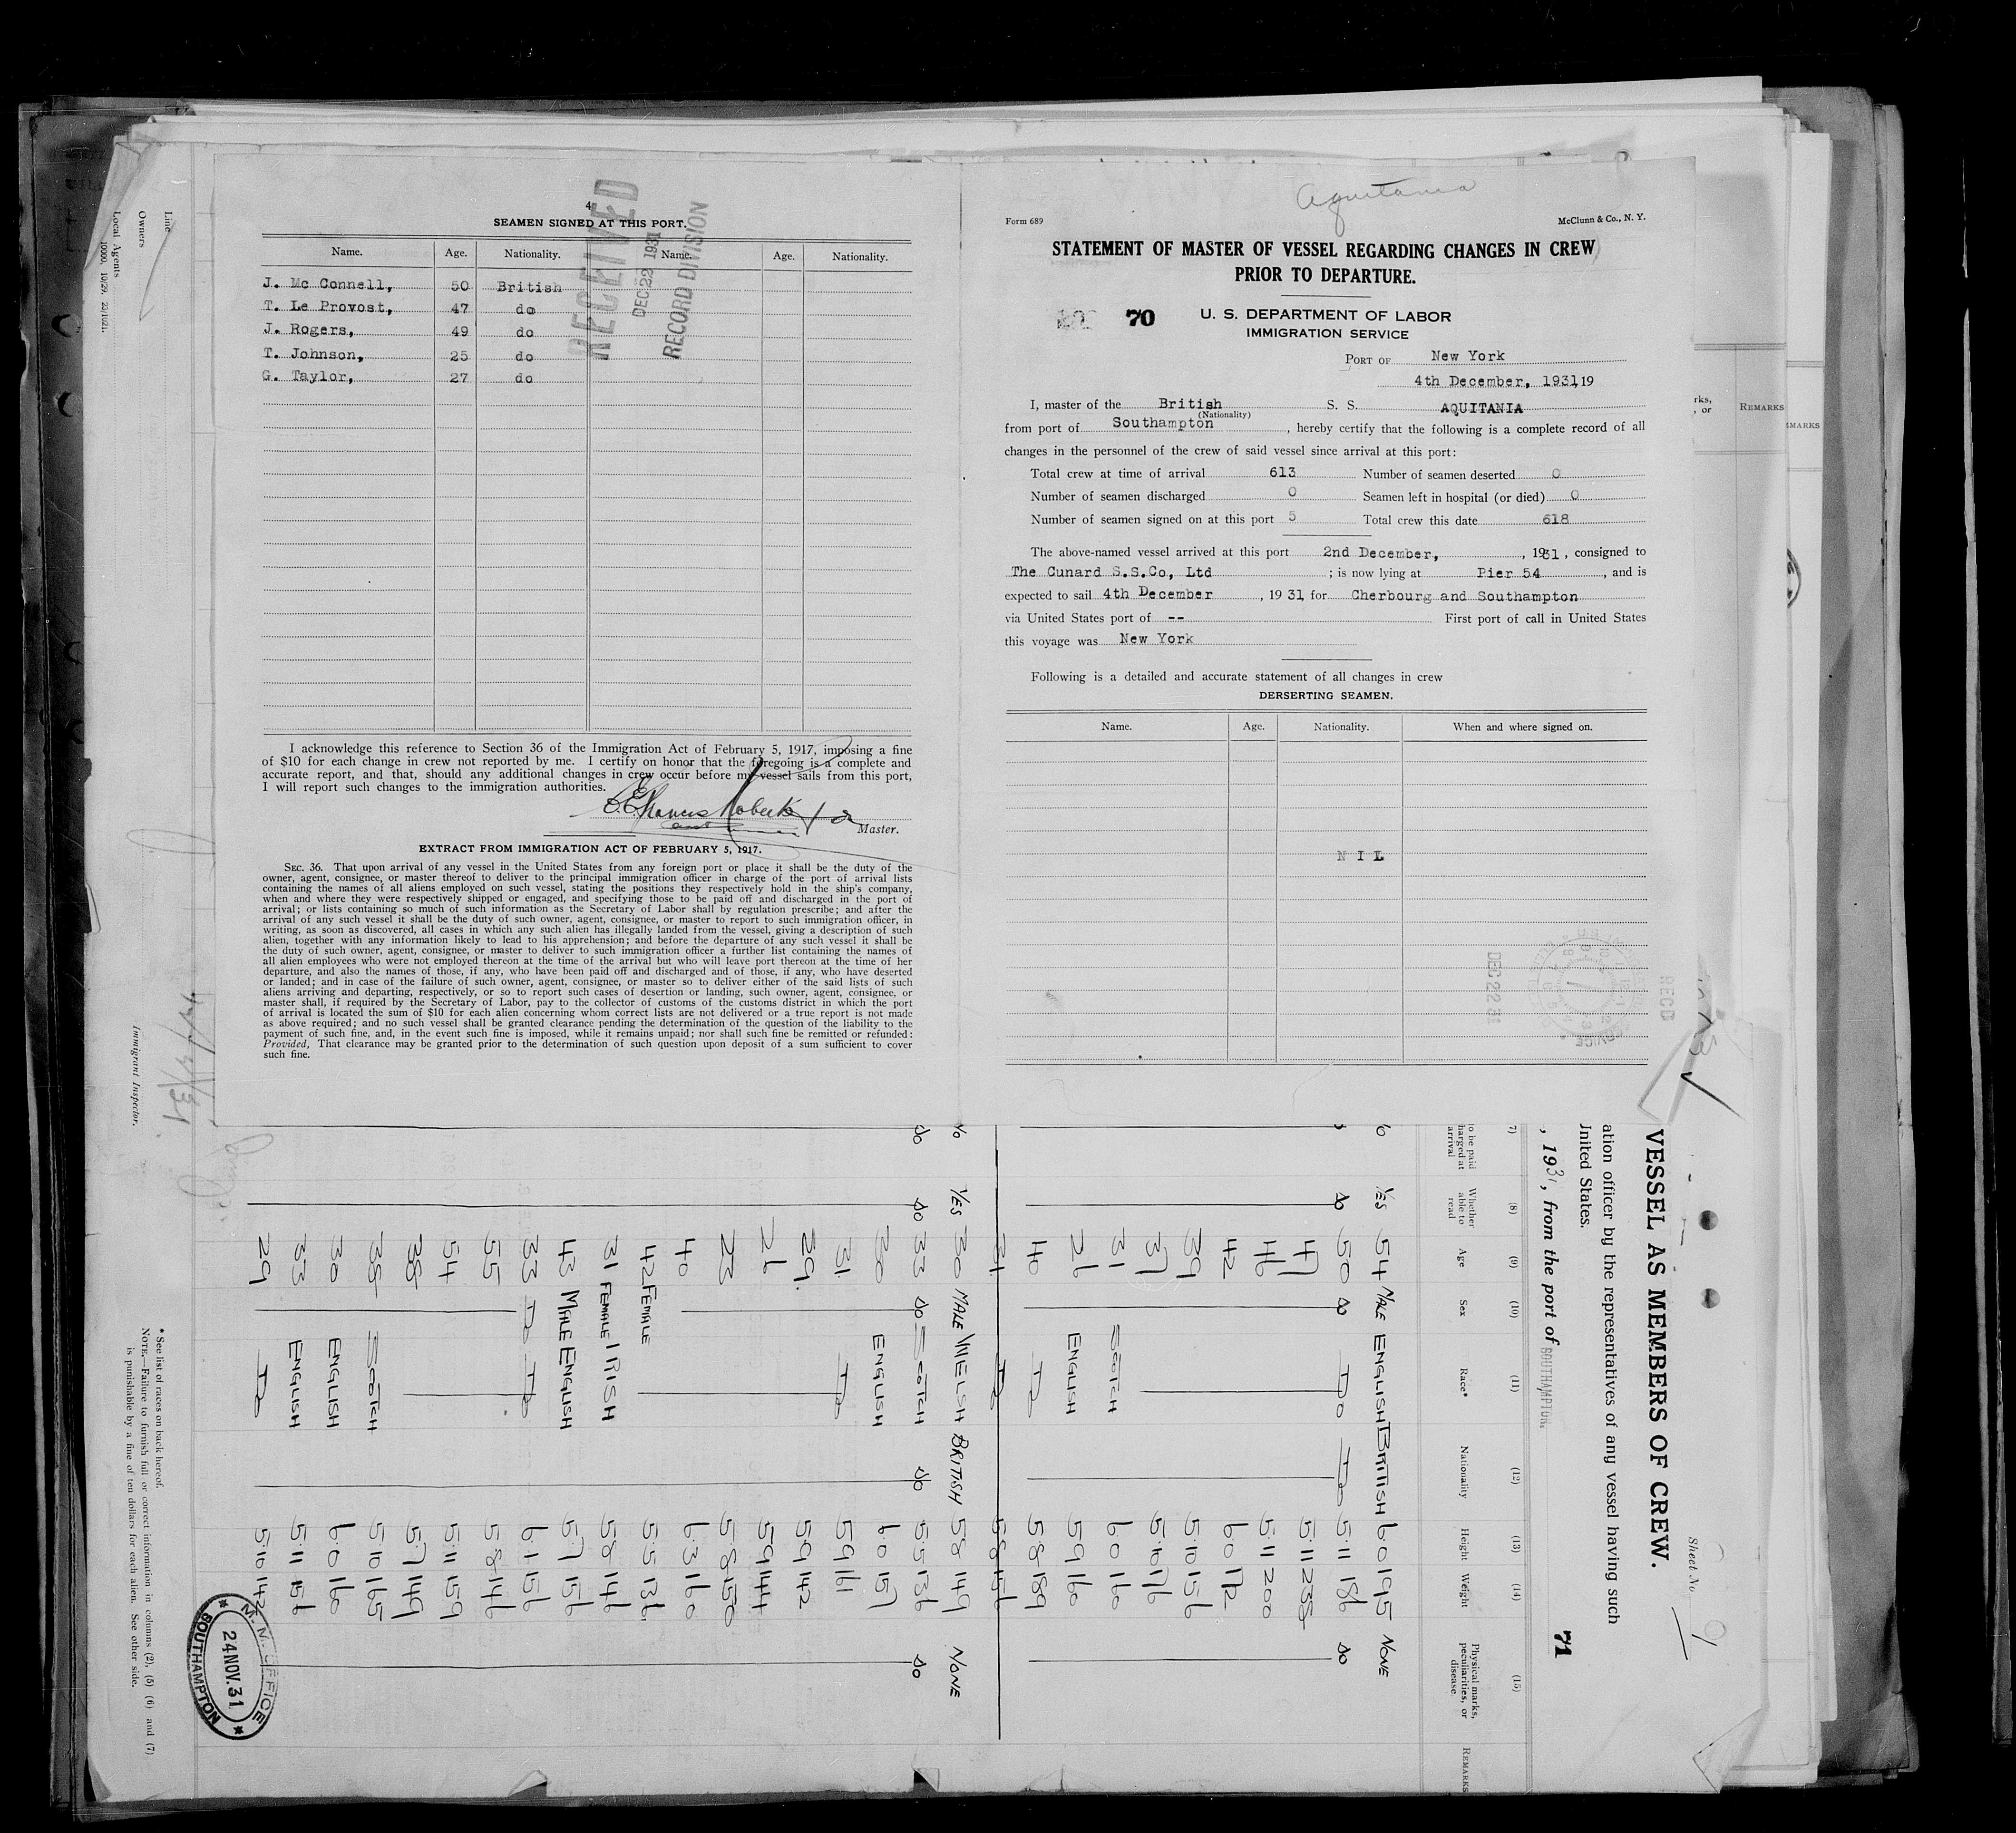 4
SEAMEN SIGNED AT THIS PORT.
Name. Age. Nationality. Name. Age. Nationality.
J. Mc Connell, 50 British
T. Le Provost, 47 do
J. Rogers, 49 do
T. Johnson, 25 do
G. Taylor, 27 do
RECEIVED
DEC 22 1931
RECORD DIVISION
I acknowledge this reference to Section 36 of the Immigration Act of February 5, 1917, imposing a fine
of $10 for each change in crew not reported by me. I certify on honor that the foregoing is a complete and
accurate report, and that, should any additional changes in crew occur before my vessel sails from this port,
I will report such changes to the immigration authorities.
Master.
EXTRACT FROM IMMIGRATION ACT OF FEBRUARY 5, 1917.
SEC. 36. That upon arrival of any vessel in the United States from any foreign port or place it shall be the duty of the
owner, agent, consignee, or master thereof to deliver to the principal immigration officer in charge of the port of arrival lists
containing the names of all aliens employed on such vessel, stating the positions they respectively hold in the ship's company,
when and where they were respectively shipped or engaged, and specifying those to be paid off and discharged in the port of
arrival; or lists containing so much of such information as the Secretary of Labor shall by regulation prescribe; and after the
arrival of any such vessel it shall be the duty of such owner, agent, consignee, or master to report to such immigration officer, in
writing, as soon as discovered, all cases in which any such alien has illegally landed from the vessel, giving a description of such
alien, together with any information likely to lead to his apprehension; and before the departure of any such vessel it shall be
the duty of such owner, agent, consignee, or master to deliver to such immigration officer a further list containing the names of
all alien employees who were not employed thereon at the time of the arrival but who will leave port thereon at the time of her
departure, and also the names of those, if any, who have been paid off and discharged and of those, if any, who have deserted
or landed; and in case of the failure of such owner, agent, consignee, or master so to deliver either of the said lists of such
aliens arriving and departing, respectively, or so to report such cases of desertion or landing, such owner, agent, consignee, or
master shall, if required by the Secretary of Labor, pay to the collector of customs of the customs district in which the port
of arrival is located the sum of $10 for each alien concerning whom correct lists are not delivered or a true report is not made
as above required; and no such vessel shall be granted clearance pending the determination of the question of the liability to the
payment of such fine, and, in the event such fine is imposed, while it remains unpaid; nor shall such fine be remitted or refunded:
Provided, That clearance may be granted prior to the determination of such question upon deposit of a sum sufficient to cover
such fine.
Aquitania
Form 689 McClunn & Co., N. Y.
STATEMENT OF MASTER OF VESSEL REGARDING CHANGES IN CREW
PRIOR TO DEPARTURE.
70 U. S. DEPARTMENT OF LABOR
IMMIGRATION SERVICE
PORT OF New York
4th December, 1931, 19
I, master of the British S. S. AQUITANIA
(Nationality)
from port of Southampton, hereby certify that the following is a complete record of all
changes in the personnel of the crew of said vessel since arrival at this port:
Total crew at time of arrival 613 Number of seamen deserted 0
Number of seamen discharged 0 Seamen left in hospital (or died) 0
Number of seamen signed on at this port 5 Total crew this date 618
The above-named vessel arrived at this port 2nd December, , 1931, consigned to
The Cunard S.S.Co, Ltd ; is now lying at Pier 54, and is
expected to sail 4th December, 1931, for Cherbourg and Southampton
via United States port of -- First port of call in United States
this voyage was New York
Following is a detailed and accurate statement of all changes in crew
DERSERTING SEAMEN.
Name. Age. Nationality. When and where signed on.
N I L
DEC 22 31
REC'D
Line
Owners
Local Agents
10000. 10/29. 22/1621.
Immigrant Inspector.
rks, , or REMARKS
MARKS
VESSEL AS MEMBERS OF CREW.
Sheet No. 9
ation officer by the representatives of any vessel having such
United States.
, 1931, from the port of SOUTHAMPTON.
71
(7) (8) (9) (10) (11) (12) (13) (14) (15)
to be paid
harged at
arrival
Whether able to read
Age
Sex
Race*
Nationality
Height
Weight
Physical marks, peculiarities, or disease
REMARKS
YES 54 MALE ENGLISH BRITISH 6 0 195 NONE
do 50 do Do Do 5 11 186 do
47 5 11 235
46 5 11 200
42 6 0 172
39 5 10 156
37 5 10 176
31 SCOTCH 6 0 160
26 ENGLISH 5 9 160
40 Do 5 8 189
31 Do 5 8 156
No YES 30 MALE WELSH BRITISH 5 8 149 NONE
do do 33 do SCOTCH do 5 5 136 do
30 ENGLISH 6 0 157
31 Do 5 9 161
29 5 9 142
26 5 9 144
23 5 8 150
40 6 3 160
42 FEMALE 5 5 136
31 FEMALE IRISH 5 8 146
43 MALE ENGLISH 5 7 156
33 Do Do 6 1 156
55 5 8 146
54 5 11 159
38 5 7 149
35 SCOTCH 5 10 165
30 ENGLISH 6 0 160
33 ENGLISH 5 11 156
29 Do 5 10 142
M. M. OFFICE
24 NOV. 31
SOUTHAMPTON
* See list of races on back hereof.
NOTE.—Failure to furnish full or correct information in columns (2), (5) (6) and (7)
is punishable by a fine of ten dollars for each alien. See other side.